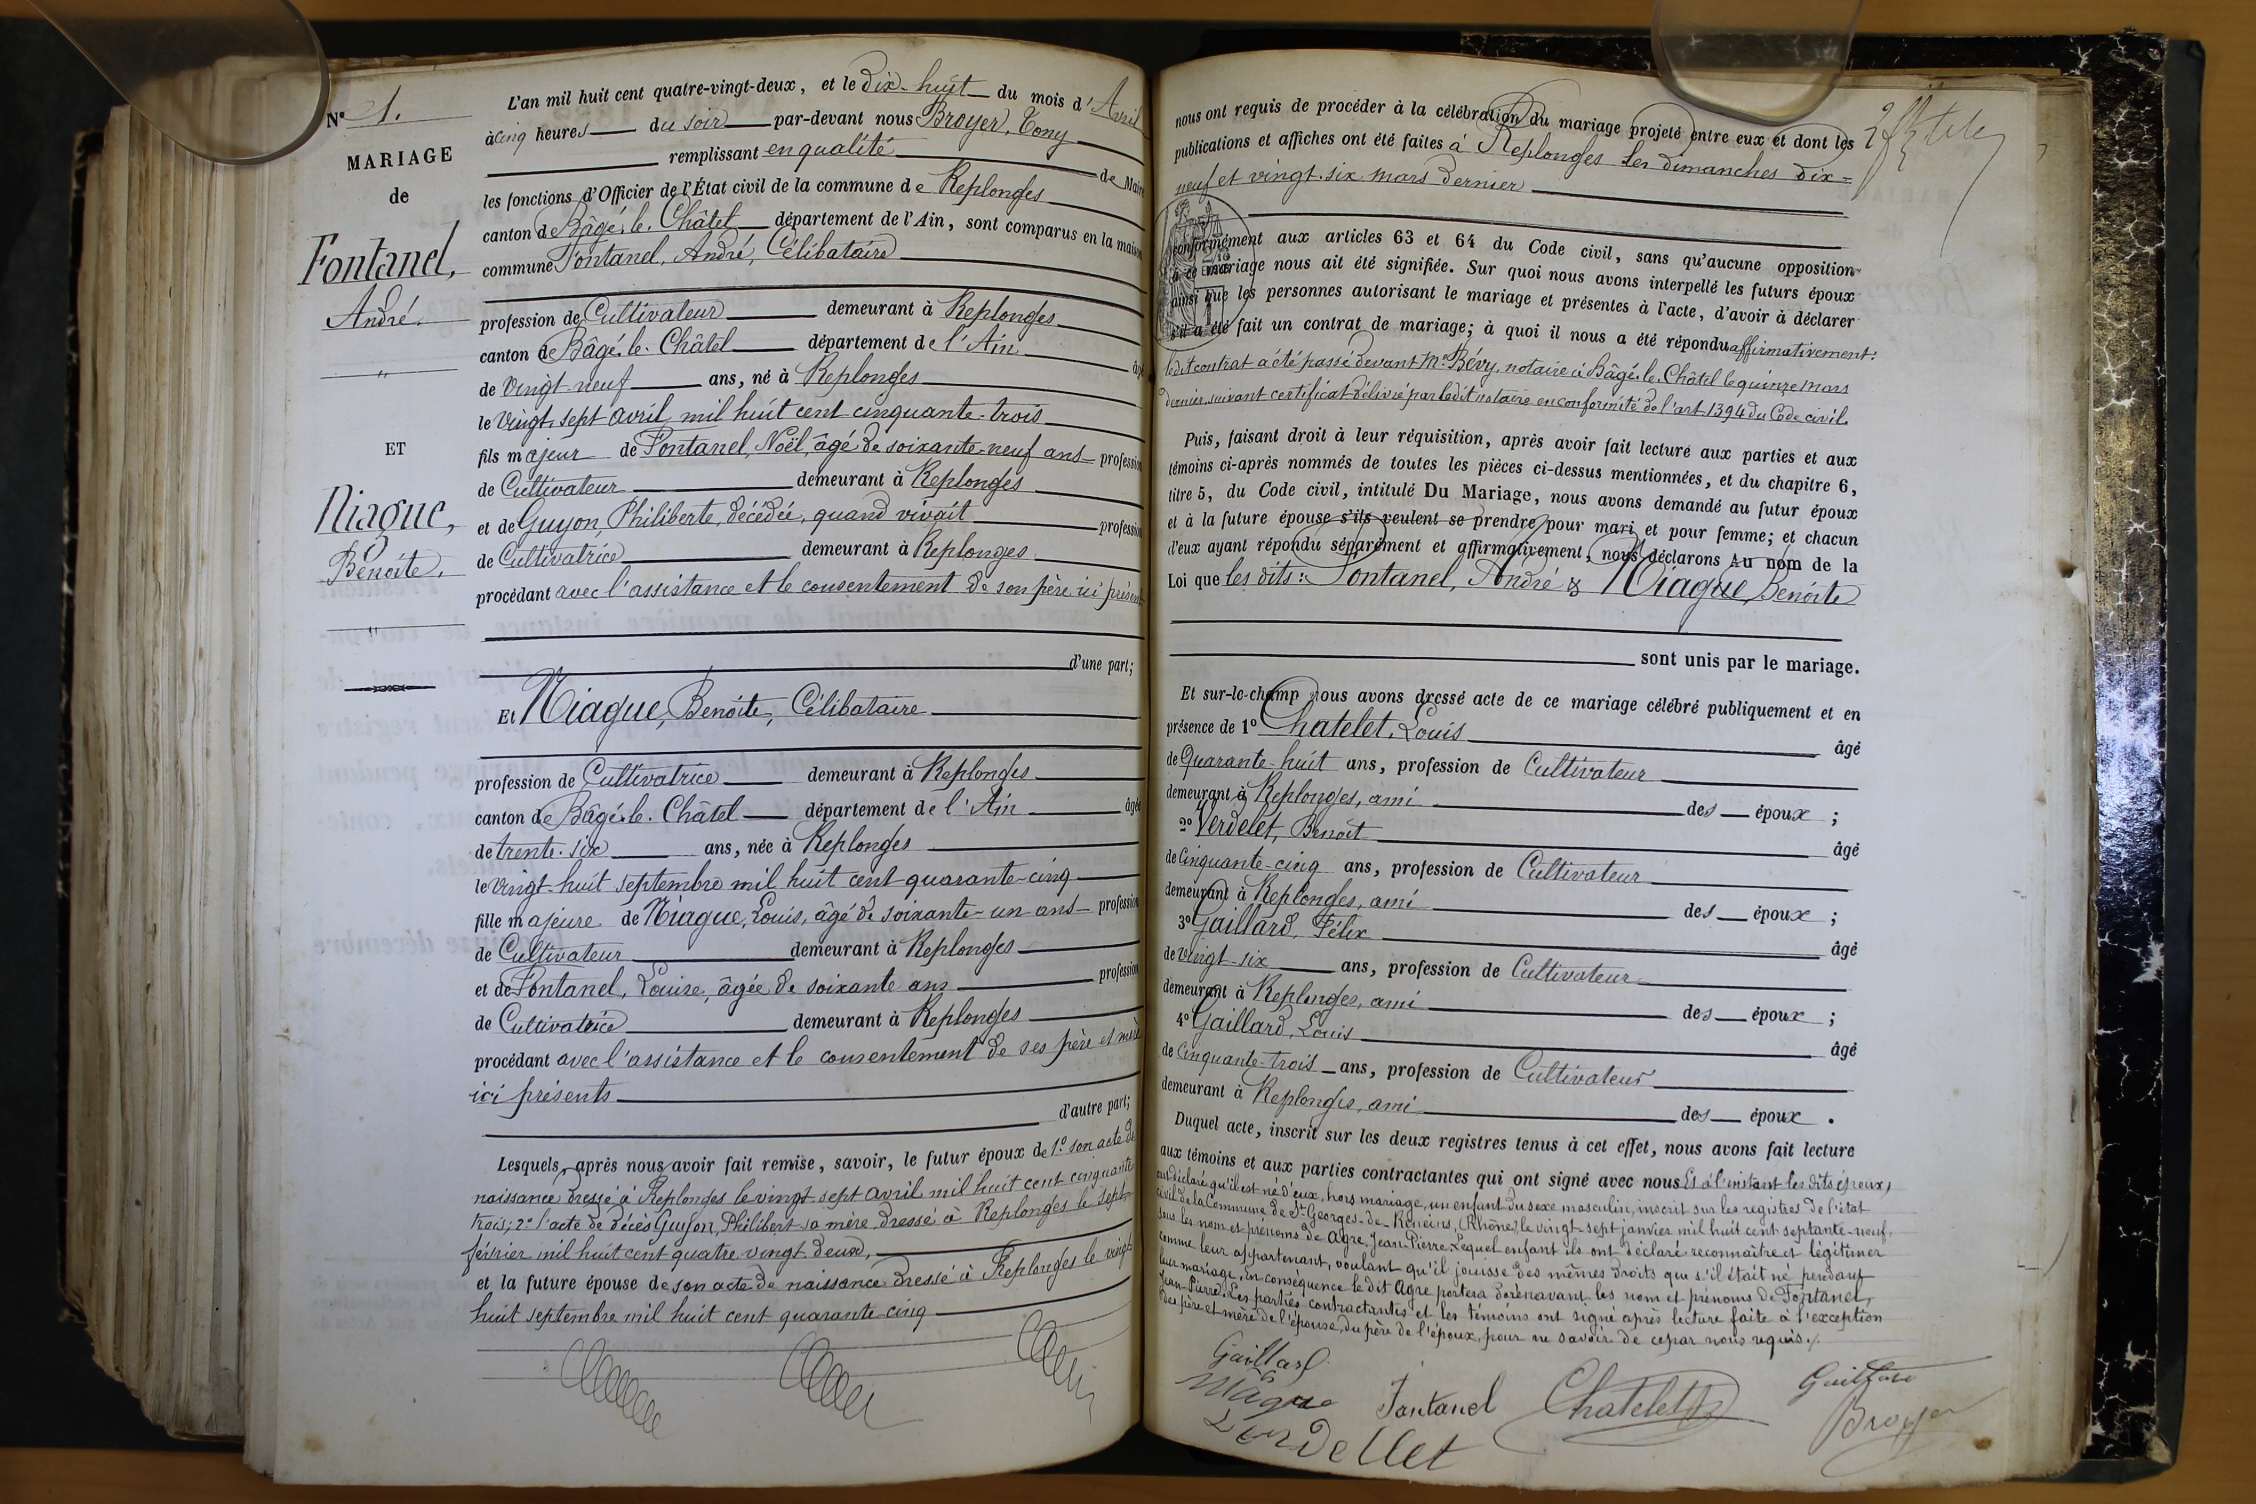 N° 1.
MARIAGE
de
Fontanel,
André.
"
ET
Niague,
Benoîte.
"
L'an mil huit cent quatre-vingt-deux, et le dix-huit du mois d'Avril
à cinq heures du soir par-devant nous Broyer, Tony
remplissant en qualité de Maire
les fonctions d'Officier de l'État civil de la commune de Replonges
canton de Bâgé-le-Châtel département de l'Ain, sont comparus en la maison
commune Fontanel, André, Célibataire
profession de Cultivateur demeurant à Replonges
canton de Bâgé-le-Châtel département de l'Ain âgé
de vingt-neuf ans, né à Replonges
le vingt-sept avril mil huit cent cinquante-trois
fils majeur de Fontanel, Noël, âgé de soixante-neuf ans profession
de Cultivateur demeurant à Replonges
et de Guyon, Philiberte, décédée, quand vivait profession
de Cultivatrice demeurant à Replonges
procédant avec l'assistance et le consentement de son père ici présent
d'une part;
Et Niague, Benoîte, Célibataire
profession de Cultivatrice demeurant à Replonges
canton de Bâgé-le-Châtel département de l'Ain âgée
de trente-six ans, née à Replonges
le vingt-huit septembre mil huit cent quarante-cinq
fille majeure de Niague, Louis, âgé de soixante-un ans profession
de Cultivateur demeurant à Replonges
et de Fontanel, Louise, âgée de soixante ans profession
de Cultivatrice demeurant à Replonges
procédant avec l'assistance et le consentement de ses père et mère
ici présents
d'autre part;
Lesquels, après nous avoir fait remise, savoir, le futur époux de 1° son acte de
naissance dressé à Replonges le vingt-sept avril mil huit cent cinquante
trois; 2° l'acte de décès Guyon, Philibert sa mère dressé à Replonges le sept
février mil huit cent quatre-vingt-deux,
et la future épouse de son acte de naissance dressé à Replonges le vingt
huit septembre mil huit cent quarante-cinq
nous ont requis de procéder à la célébration du mariage projeté entre eux et dont les
publications et affiches ont été faites à Replonges les dimanches dix=
neuf et vingt-six mars dernier
conformément aux articles 63 et 64 du Code civil, sans qu'aucune opposition
à ce mariage nous ait été signifiée. Sur quoi nous avons interpellé les futurs époux
ainsi que les personnes autorisant le mariage et présentes à l'acte, d'avoir à déclarer
s'il a été fait un contrat de mariage; à quoi il nous a été répondu affirmativement:
ledit contrat a été passé devant Me Bévy, notaire à Bâgé-le-Châtel le quinze mars
dernier, suivant certificat délivré par ledit notaire en conformité de l'art. 1394 du Code civil.
Puis, faisant droit à leur réquisition, après avoir fait lecture aux parties et aux
témoins ci-après nommés de toutes les pièces ci-dessus mentionnées, et du chapitre 6,
titre 5, du Code civil, intitulé Du Mariage, nous avons demandé au futur époux
et à la future épouse s'ils veulent se prendre pour mari et pour femme; et chacun
d'eux ayant répondu séparément et affirmativement, nous déclarons Au nom de la
Loi que les dits: Fontanel, André & Niague, Benoîte
sont unis par le mariage.
Et sur-le-champ nous avons dressé acte de ce mariage célébré publiquement et en
présence de 1° Chatelet, Louis âgé
de Quarante-huit ans, profession de Cultivateur
demeurant à Replonges, ami des époux ;
2° Verdelet, Benoît âgé
de Cinquante-cinq ans, profession de Cultivateur
demeurant à Replonges, ami des époux ;
3° Gaillard, Félix âgé
de vingt-six ans, profession de Cultivateur
demeurant à Replonges, ami des époux ;
4° Gaillard, Louis âgé
de Cinquante-trois ans, profession de Cultivateur
demeurant à Replonges, ami des époux .
Duquel acte, inscrit sur les deux registres tenus à cet effet, nous avons fait lecture
aux témoins et aux parties contractantes qui ont signé avec nous Et à l'instant les dits époux,
ont déclaré qu'il est né d'eux, hors mariage, un enfant du sexe masculin, inscrit sur les registres de l'état
civil de la Commune de St Georges-de-Reneins, (Rhône), le vingt-sept janvier mil huit cent septante-neuf,
sous les nom et prénoms de Agre, Jean-Pierre. Lequel enfant ils ont déclaré reconnaître et légitimer
comme leur appartenant, voulant qu'il jouisse des mêmes droits que s'il était né pendant
leur mariage, en conséquence le dit Agre portera dorénavant les nom et prénoms de Fontanel,
Jean-Pierre. Les parties contractantes et les témoins ont signé après lecture faite à l'exception
des père et mère de l'épouse, du père de l'époux, pour ne savoir de ce par nous requis./.
Gaillard
Niague Fontanel Chatelet Gaillard
Verdellet Broyer